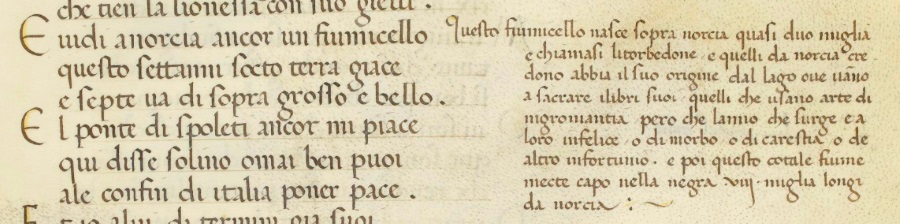 che tien la lionessa con suo gielli .
E uidi anorcia ancor un fiumicello
questo settanni socto terra giace
e septe ua di sopra grosso e bello .
E l ponte di spoleti ancor mi piace
qui disse solino omai ben puoi
ale confin di italia poner pace .
di termini gia suoi
Questo fiumicello nasce sopra norcia quasi duo miglia
e chiamasi litorbedone . e quelli da norcia cre
dono abbia il suo origine dal lago oue uano
a sacrare ilibri suoi quelli che usano arte di
nigromantia pero che lanno che surge e a
loro infelice . o di morbo . o di carestia . o de
altro infortunio . e poi questo cotale fiume
mecte capo nella negra viij . miglia longi
da norcia